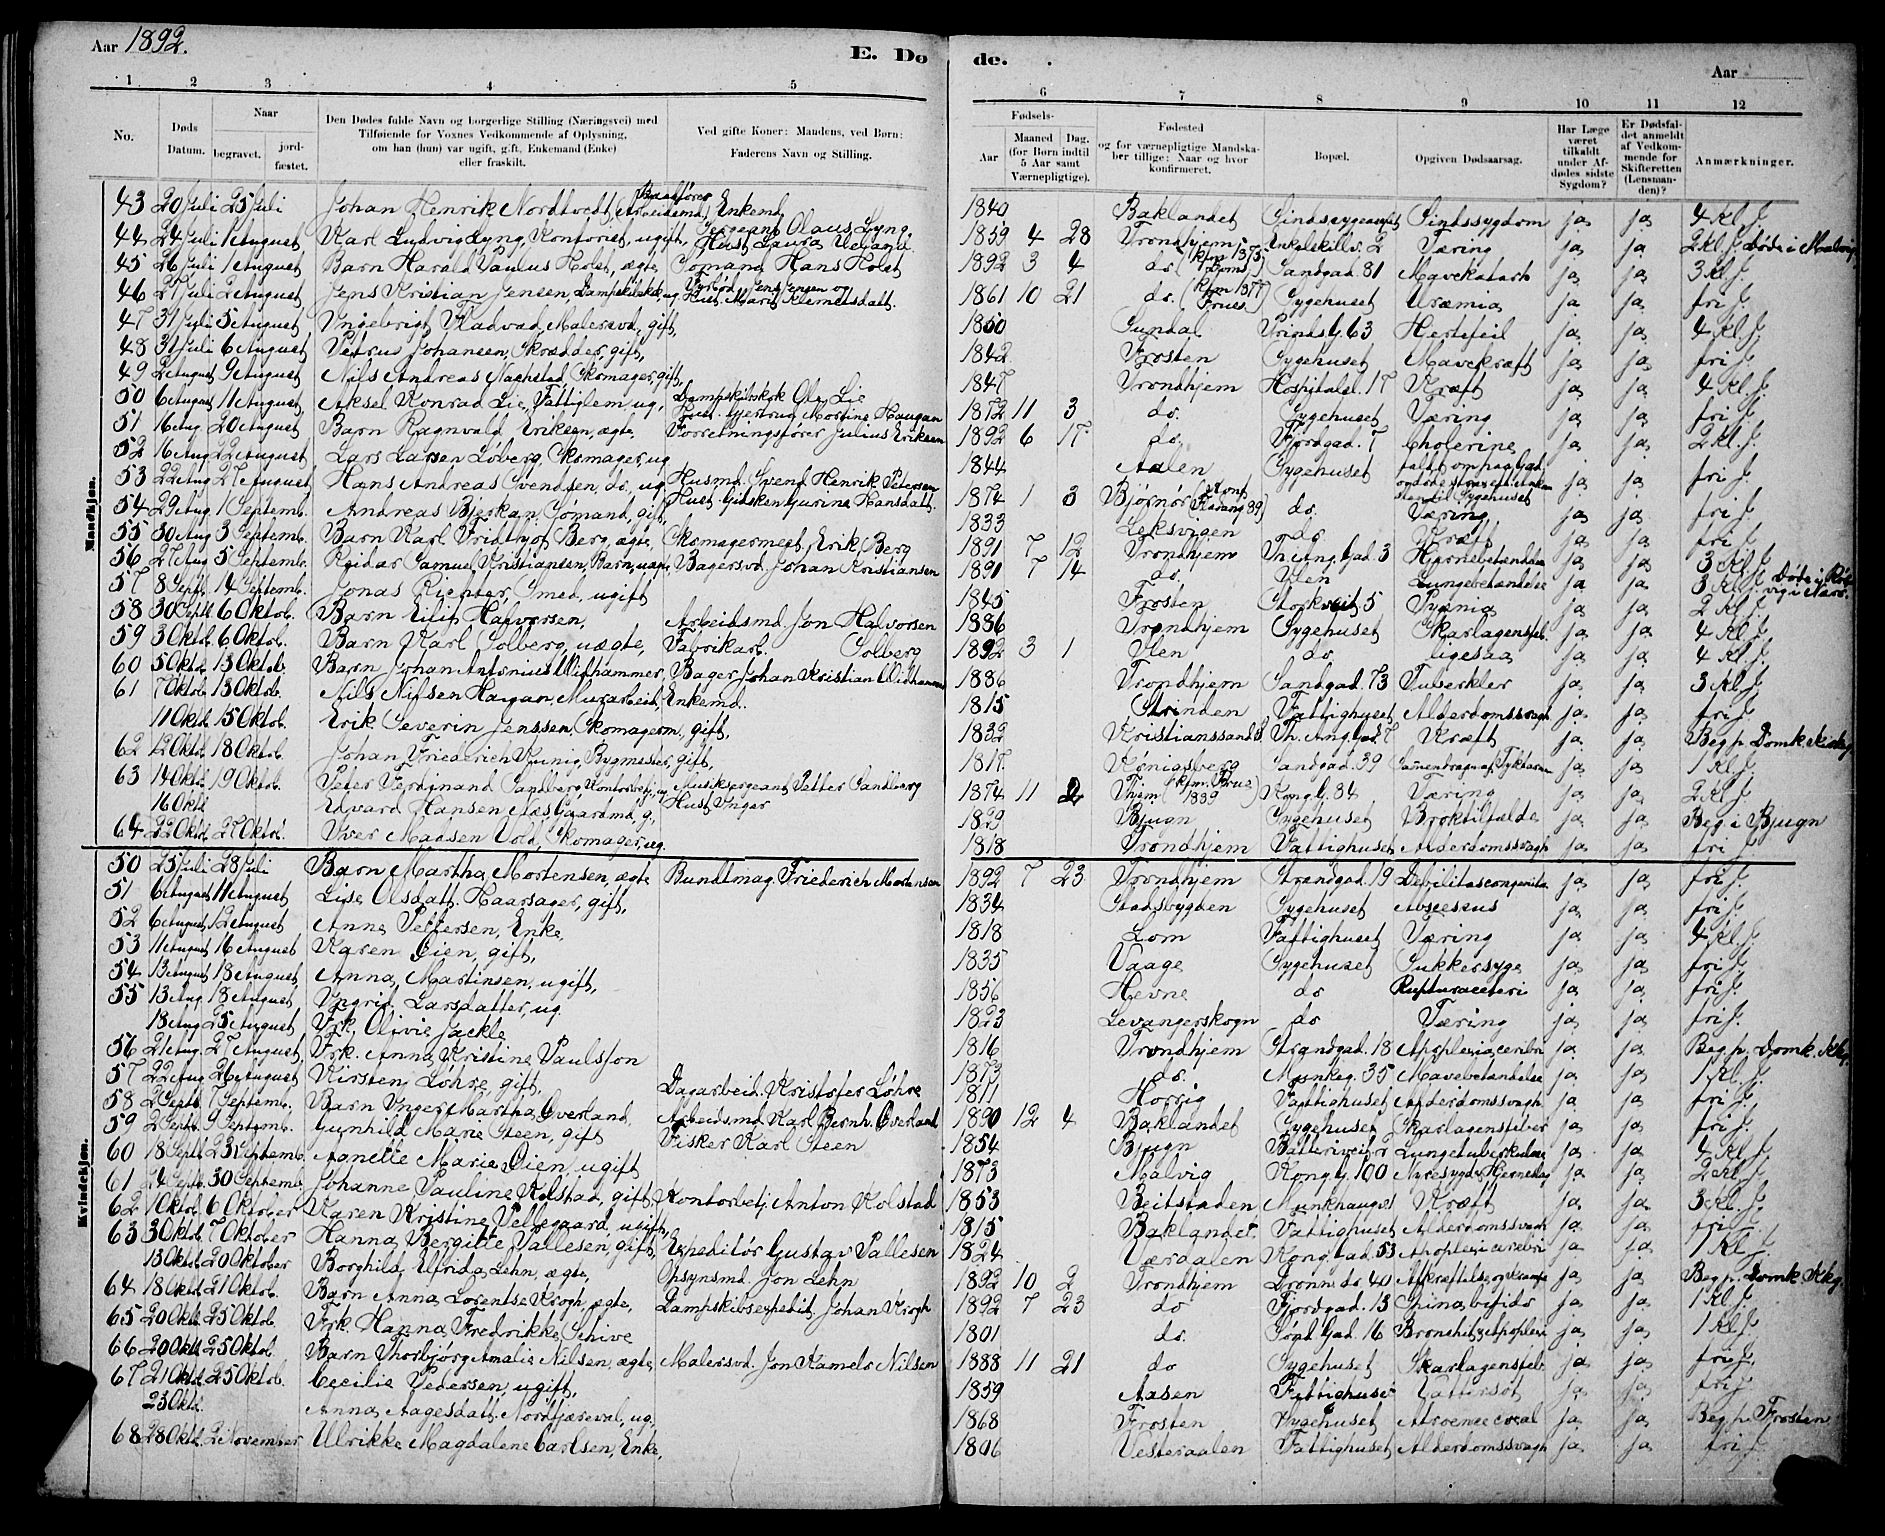 Aar 1892.
E. Dø
de.
Aar
1 2 3 4 5
6 7 8 9 10 11 12
No.
Døds Datum.
Naar
begravet.
jordfæstet.
Den Dødes fulde Navn og borgerlige Stilling (Næringsvei) med
Tilføiende for Voxnes Vedkommende af Oplysning,
om han (hun) var ugift, gift, Enkemand (Enke)
eller fraskilt.
Ved gifte Koner: Mandens, ved Børn:
Faderens Navn og Stilling.
Fødsels-
Aar
Maaned Dag.
(for Børn indtil
5 Aar samt
Værnepligtige).
Fødested
og for værnepligtige Mandskaber tillige: Naar og hvor
konfirmeret.
Bopæl.
Opgiven Dødsaarsag.
Har Læge
været
tilkaldt
under Afdødes sidste
Sygdom?
Er Dødsfaldet anmeldt
af Vedkommende for
Skifteretten
(Lensmanden)?
Anmærkninger.
Mandkjøn.
43 20 Juli 25 Juli Johan Henrik Nordtvedt, Enkemd. 1840 Baklandet Sindssygeasylet Sindssygdom ja ja 4 Kl. J.
44 24 Juli 1 August Karl Ludvig Lyng, Kontorist, ugift, Sergeant Olaus Lyng, 1859 4 28 Trondhjem 2 Tæring ja ja 2 Kl. J. Døde i Malvig
45 26 Juli 1 August Barn Harald Paulus Holst, ægte, Sømand Hans Holst 1892 3 4 do. Sandgad. 81 Mavekatarh ja ja 3 Kl. J.
46 27 Juli 2 August Jens Kristian Jensen, Jens Jensen og 1861 10 21 do. Sygehuset Uræmia ja ja fri J.
47 31 Juli 5 August Ingebrigt Hladvad, Malersvd, gift, 1850 Sundal Prinds g. 63 Hertefeil ja ja 4 Kl. J.
48 31 Juli 6 August Petrus Johansen, Skrædder, gift, 1842 Frosten Sygehuset Mavekræft ja ja fri J.
49 2 August 9 August Nils Andreas Skomager, gift, 1847 Trondhjem Hospitalsl. 17 Kræft ja ja 4 Kl. J.
50 6 August 11 August Aksel Konrad Lie, Fattiglem, ug, Dampskibskok Ole Lie 1872 11 3 do. Sygehuset Tæring ja ja fri J.
51 16 Aug 20 August Barn Ragnvald Eriksen, ægte Forretningsfører Julius Eriksen 1892 6 17 do. Fjordgad. 7 Cholerine ja ja 2 Kl. J.
52 16 Aug 22 August Lars Larsen Løberg, Skomager, ug 1844 Aalen Sygehuset ja ja fri J.
53 22 Aug 27 August Hans Andreas Svendsen, do, ug Husmd. Svend Henrik Petersen 1874 1 3 Bjørnør do. Tæring ja ja fri J.
54 29 Aug 1 Septemb. Andreas Bjerkan, Sømand, gift, 1833 Leksvigen do Kræft ja ja fri J.
55 30 Aug 3 Septemb. Barn Karl Fridthjof Berg, ægte, Skomagermest. Erik Berg 1891 7 12 Trondhjem Th. Ang. Gad. 3 Hjernebetændelse ja ja 3 Kl. J.
56 27 Aug 5 Septemb. Reidar Samuel Kristiansen, Barn, uægte, Bagersvd. Johan Kristiansen 1891 7 14 do. Ilen Lungebetændelse ja ja 3 Kl. J.
57 8 Septb. 14 Septemb. Jonas Richter, Smed, ugift 1845 Frosten 5 Pyæmia ja ja 2 Kl. J.
58 30 Septb. 6 Oktob. Barn Eilif Halvorsen, Arbeidsmd. Jon Halvorsen 1886 Trondhjem Sygehuset Skarlagensfeb. ja ja 4 Kl. J.
59 3 Oktob. 6 Oktob. Barn Karl Solberg, uægte, Fabrikarb. Solberg 1892 3 1 Ilen do. ligesaa ja ja 4 Kl. J.
60 5 Oktob. 13 Oktob. Barn Johan Antonius Widhammer, Bager Johan Kristian Widhammer 1886 Trondhjem Sandgad. 73 Tuberkler ja ja 3 Kl. J.
61 7 Oktob. 13 Oktob. Nils Nilsen Haugan, Murarbeid, Enkemd. 1815 Strinden Fattighuset Alderdomssvagh ja ja fri J.
11 Oktob. 15 Oktob. Erik Severin Jenssen, Skomagerm, gift, 1832 Kristianssand Th. Ang. Gad. 7 Kræft ja ja Beg. p. Domk. Kirkeg.
62 12 Oktob. 18 Oktob. Johan Friederich Bygmester, gift, 1817 Königsberg Sandgad. 39 ja ja 1 Kl. J.
63 14 Oktob. 19 Oktob. Peter Ferdinand Sandberg, Kontorbetj, ug Musiksergeant Petter Sandberg 1874 11 2 Thjem Kong. g. 84 Tæring ja ja 2 Kl. J.
16 Oktb Edvard Hansen Gaardmd, g, 1829 Bjugn Sygehuset Broktilfælde ja ja Beg. i Bjugn
64 22 Oktb. 27 Oktob. Iver Madsen Vold, Skomager, ug. 1818 Trondhjem Fattighuset Alderdomssvagh ja ja fri J.
Kvindekjøn.
50 25 Juli 28 Juli Barn Martha Mortensen, ægte Bundtmag. Friederich Mortensen 1892 7 23 Trondhjem Strandgad. 19 Debilitas congenita ja ja fri J.
51 6 August 11 August Lise Olsdatt. Haarsager, gift, 1834 Stadsbygden Sygehuset Abscessus ja ja fri J.
52 6 August 12 August Anne Pettersen, Enke, 1818 Lom Fattighuset Tæring ja ja 4 Kl. J.
53 11 August 16 August Karen Øien, gift, 1835 Vaage Sygehuset Sukkersyge ja ja fri J.
54 13 August 18 August Anna Martinsen, ugift, 1856 Hevne do ja ja fri J.
55 13 Aug 18 August Ingrid Larsdatter, ug. 1823 Levangerskogn do Tæring ja ja fri J.
18 Aug 25 August Frk. Olivie Jackle 1816 Trondhjem Strandgad. 18 Apoplexia cerebri ja ja Beg. p. Domk. Kkg.
56 21 Aug. 27 August Frk. Anna Kristine Paulsson 1873 do. Munkeg. 35 Mavebetændelse ja ja 1 Kl. J.
57 22 Aug 26 August Kirsten Løhre, gift, Dagarbeid. Kristofer Løhre 1811 Fattighuset Alderdomssvagh ja ja fri J.
58 2 Septb. 7 Septemb. Barn Inger Martha Øverland, Arbeidsmd Karl Bernh. Øverland 1890 12 4 Baklandet Sygehuset Skarlagensfeber ja ja fri J.
59 2 Septb. 9 Septemb. Gunhild Marie Steen, gift Fisker Karl Steen 1854 Bjugn Batteriveit. 7 Lungetuberkulose ja ja 4 Kl. J.
60 18 Septb. 23 Septemb. Anette Marie Øien, ugift 1873 Malvig Kong. g. 100 ja ja 2 Kl. J.
61 24 Septb. 30 Septemb. Johanne Pauline Kolstad, gift, Kontorbetj. Anton Kolstad 1853 Beitstaden Munkhaugv. Kræft ja ja 3 Kl. J.
62 1 Oktob. 6 Oktober Karen Kristine ugift, 1815 Baklandet Fattighuset Alderdomssvagh ja ja fri J.
63 3 Oktob. 7 Oktober Hanna Bergitte Pallesen, gift, Expeditør Gustav Pallesen 1824 Værdalen Kong. Gad. 53 Apoplexia cerebri ja ja 1 Kl. J.
13 Oktob. 20 Oktober Borghild Lehn, ægte, Opsynsmd. Jon Lehn 1892 10 2 Trondhjem 40 ja ja Beg. p. Domk. Kkg.
64 18 Oktb. 21 Oktob. Barn Anna Lorentse Krogh, ægte, Dampskibsexpedit. Johan Krogh 1892 7 23 do Fjordgad. 13 Spina bifida ja ja 1 Kl. J.
65 20 Oktb. 25 Oktob. Frk. Hanna Fredrikke Schive 1801 do. Gad. 16 ja ja 1 Kl. J.
66 20 Oktb. 25 Oktob. Barn Thorbjørg Amalie Nilsen, ægte, Malersvd. Jon Nilsen 1888 11 21 do Sygehuset Skarlagensfeb ja ja fri J.
67 21 Oktb. 25 Oktob. Cecilie Pedersen, ugift, 1859 Aasen Fattighuset Vattersot ja ja fri J.
23 Oktb. Anna Aagesdatt. ug, 1868 Frosten Sygehuset ja ja Beg. p. Frosten
68 28 Oktb. 2 November Ulrikke Magdalene Carlsen, Enke, 1806 Vesteraalen Fattighuset Alderdomssvagh ja ja fri J.